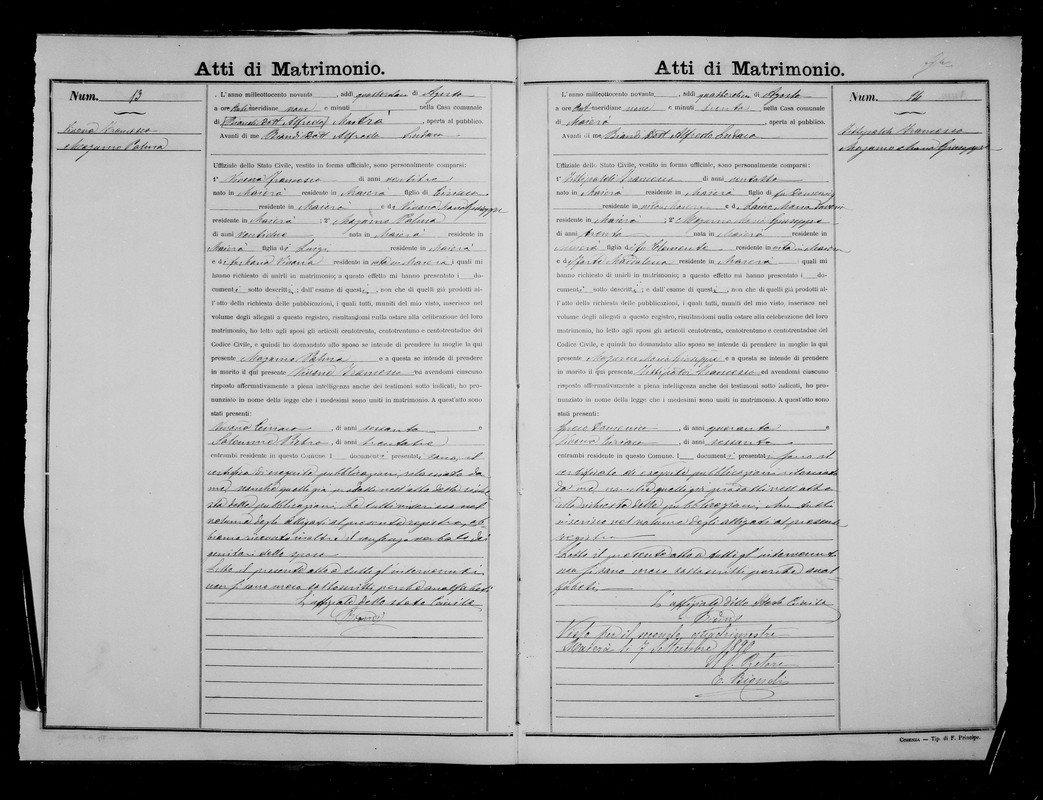 Atti di Matrimonio.
Num. 13
Vivona Francesco
Mazamo Palma
L'anno milleottocento novanta, addì quattordici di Agosto
a ore anti meridiane nove e minuti, nella Casa comunale
di Maierà, aperta al pubblico.
Avanti di me Biondi Dott Alfredo Sindaco
Uffiziale dello Stato Civile, vestito in forma ufficiale, sono personalmente comparsi:
1° Francesco di anni ventitre
nato in Maierà residente in Maierà figlio di Ciriaco
residente in Maierà e di Maria Giuseppa
residente in Maierà; 2° Palma
di anni ventidue nata in Maierà residente in
Maierà figlia di Luigi residente in Maierà
e di residente in vita in Maierà i quali mi
hanno richiesto di unirli in matrimonio; a questo effetto mi hanno presentato i do-
cumenti sotto descritti; dall'esame di questi, non che di quelli già prodotti al-
l'atto della richiesta delle pubblicazioni, i quali tutti, muniti del mio visto, inserisco nel
volume degli allegati a questo registro, risultandomi nulla ostare alla celebrazione del loro
matrimonio, ho letto agli sposi gli articoli centotrenta, centotrentuno e centotrentadue del
Codice Civile, e quindi ho domandato allo sposo se intende di prendere in moglie la qui
presente Palma e a questa se intende di prendere
in marito il qui presente Francesco ed avendomi ciascuno
risposto affermativamente a piena intelligenza anche dei testimoni sotto indicati, ho pro-
nunziato in nome della legge che i medesimi sono uniti in matrimonio. A quest'atto sono
stati presenti:
Ciriaco, di anni sessanta e
Pietro, di anni trentatre
entrambi residenti in questo Comune. I documenti presentati sono, il
certificato di eseguite pubblicazioni, rilasciato da
me, nonché quelli già prodotti nell'atto della richie
sta delle pubblicazioni, che tutti inserisco nel
volume degli allegati al presente registro,
ricevuto inoltre il consenso verbale dei
genitori dello sposo
Letto il presente atto a tutti gl'intervenuti
non si sono meco sottoscritti perché analfabeti
L'uffiziale dello stato Civile
Biondi
Atti di Matrimonio.
Num. 14
Francesco
Mazamo Maria Giuseppa
L'anno milleottocento novanta, addì quattordici di Agosto
a ore anti meridiane nove e minuti trenta, nella Casa comunale
di Maierà, aperta al pubblico.
Avanti di me Biondi Dott Alfredo Sindaco
Uffiziale dello Stato Civile, vestito in forma ufficiale, sono personalmente comparsi:
1° Francesco di anni
nato in Maierà residente in Maierà figlio di fu Domenico
residente in vita in Maierà e di Maria
residente in Maierà; 2° Maria Giuseppa
di anni trenta nata in Maierà residente in
Maierà figlia di fu Clemente residente in vita in Maierà
e di Maddalena residente in Maierà i quali mi
hanno richiesto di unirli in matrimonio; a questo effetto mi hanno presentato i do-
cumenti sotto descritti; dall'esame di questi, non che di quelli già prodotti al-
l'atto della richiesta delle pubblicazioni, i quali tutti, muniti del mio visto, inserisco nel
volume degli allegati a questo registro, risultandomi nulla ostare alla celebrazione del loro
matrimonio, ho letto agli sposi gli articoli centotrenta, centotrentuno e centotrentadue del
Codice Civile, e quindi ho domandato allo sposo se intende di prendere in moglie la qui
presente Maria Giuseppa e a questa se intende di prendere
in marito il qui presente Francesco ed avendomi ciascuno
risposto affermativamente a piena intelligenza anche dei testimoni sotto indicati, ho pro-
nunziato in nome della legge che i medesimi sono uniti in matrimonio. A quest'atto sono
stati presenti:
Domenico, di anni quaranta e
Ciriaco, di anni sessanta
entrambi residenti in questo Comune. I documenti presentati sono il
certificato di eseguite pubblicazioni rilasciato
da me, nonché quelli già prodotti nell'atto
della richiesta delle pubblicazioni, che tutti
inserisco nel volume degli allegati al presente
registro
Letto il presente atto a tutti gl'intervenuti
non si sono meco sottoscritti perché anal
fabeti
L'uffiziale dello Stato Civile
Biondi
Visto per il secondo quadrimestre
Maierà li 7 Settembre 1890
Il Pretore
Cosenza — Tip. di F. Principe.